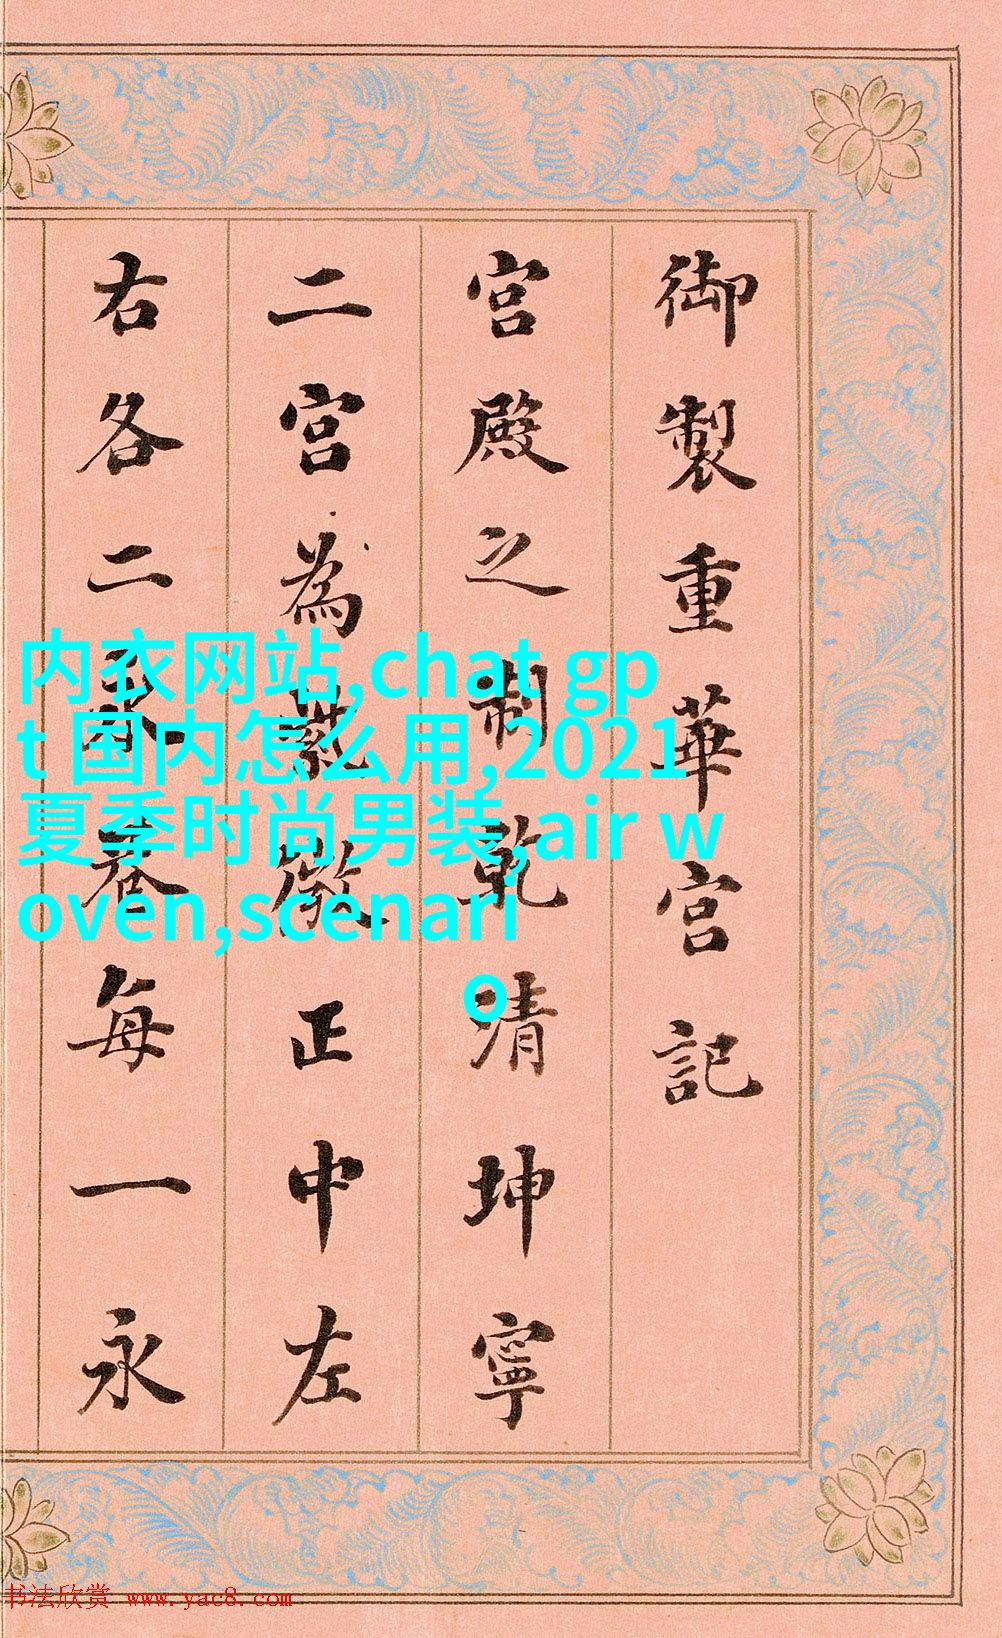 御製重華宮記
宮殿之制乾清坤寧
二宮為微正中左
右各二永巷每一永
内衣网站,chat gp
t 国内怎么用,2021
夏季时尚男装,air w
oven,scenari
o
书法欣赏 www.yac8.com